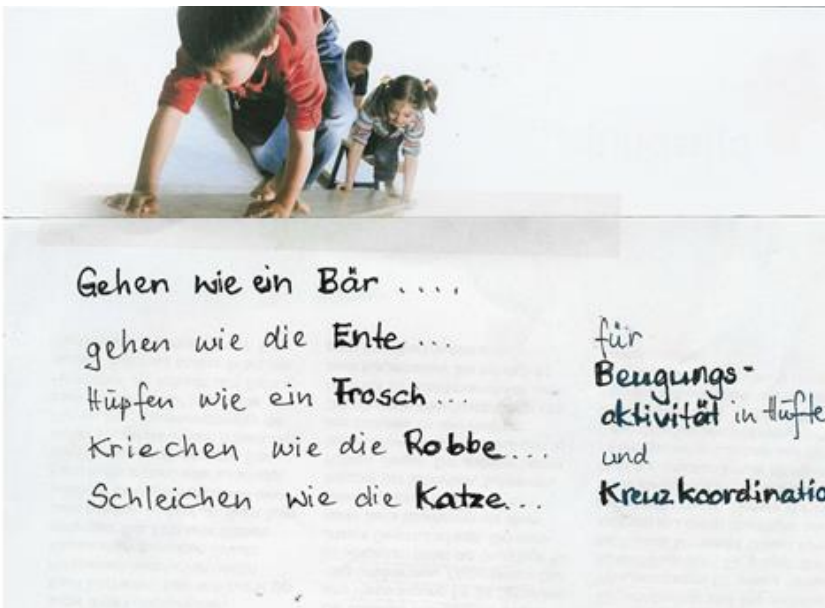 Gehen wie ein Bär ....
gehen wie die Ente ...
Hüpfen wie ein Frosch ...
Kriechen wie die Robbe ...
Schleichen wie die Katze ...
für
Beugungs-
aktivität in Hüfte
und
Kreuzkoordinatio